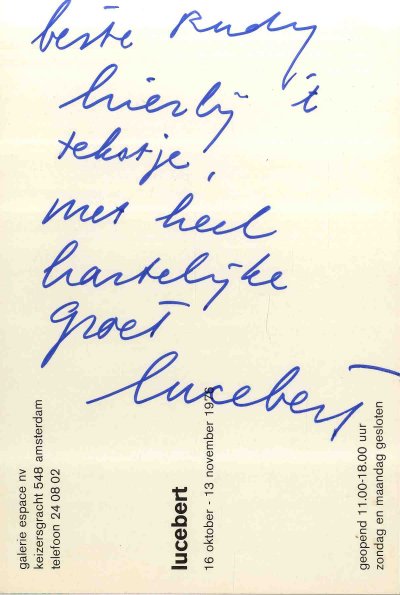 beste Rudy
hierbij 't
tekstje,
met heel
hartelijke
groet
lucebert
galerie espace nv
keizersgracht 548 amsterdam
telefoon 24 08 02
lucebert
16 oktober - 13 november 1976
geopend 11.00-18.00 uur
zondag en maandag gesloten